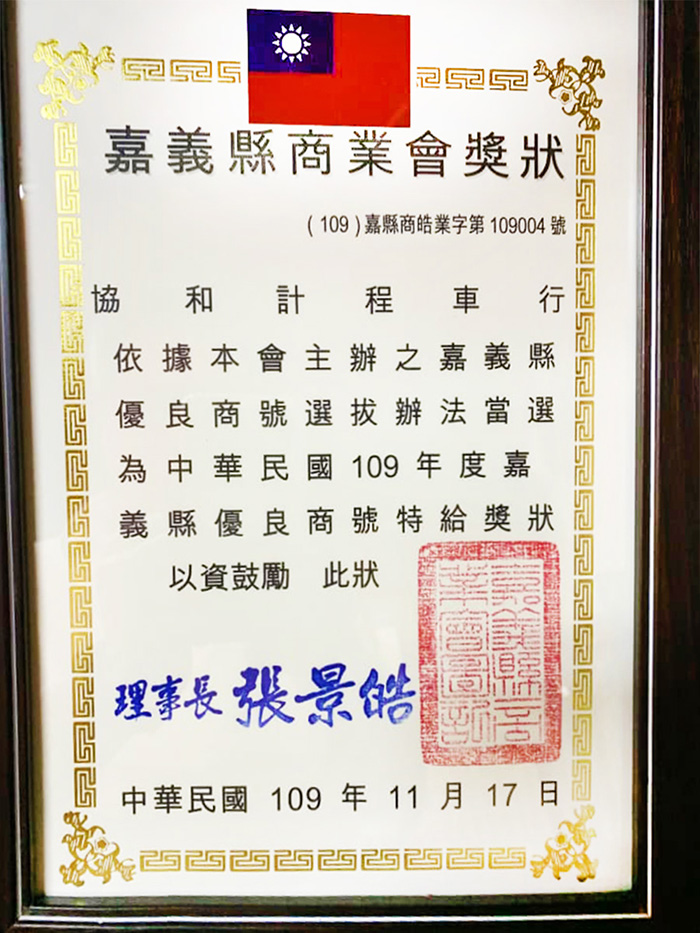 嘉義縣商業會獎狀
(109)嘉縣商皓業字第109004號
協和計程車行
依據本會主辦之嘉義縣
優良商號選拔辦法當選
為中華民國109年度嘉
義縣優良商號特給獎狀
以資鼓勵 此狀
理事長 張景皓
嘉義縣商
業會圖記
中華民國 109 年 11 月 17 日